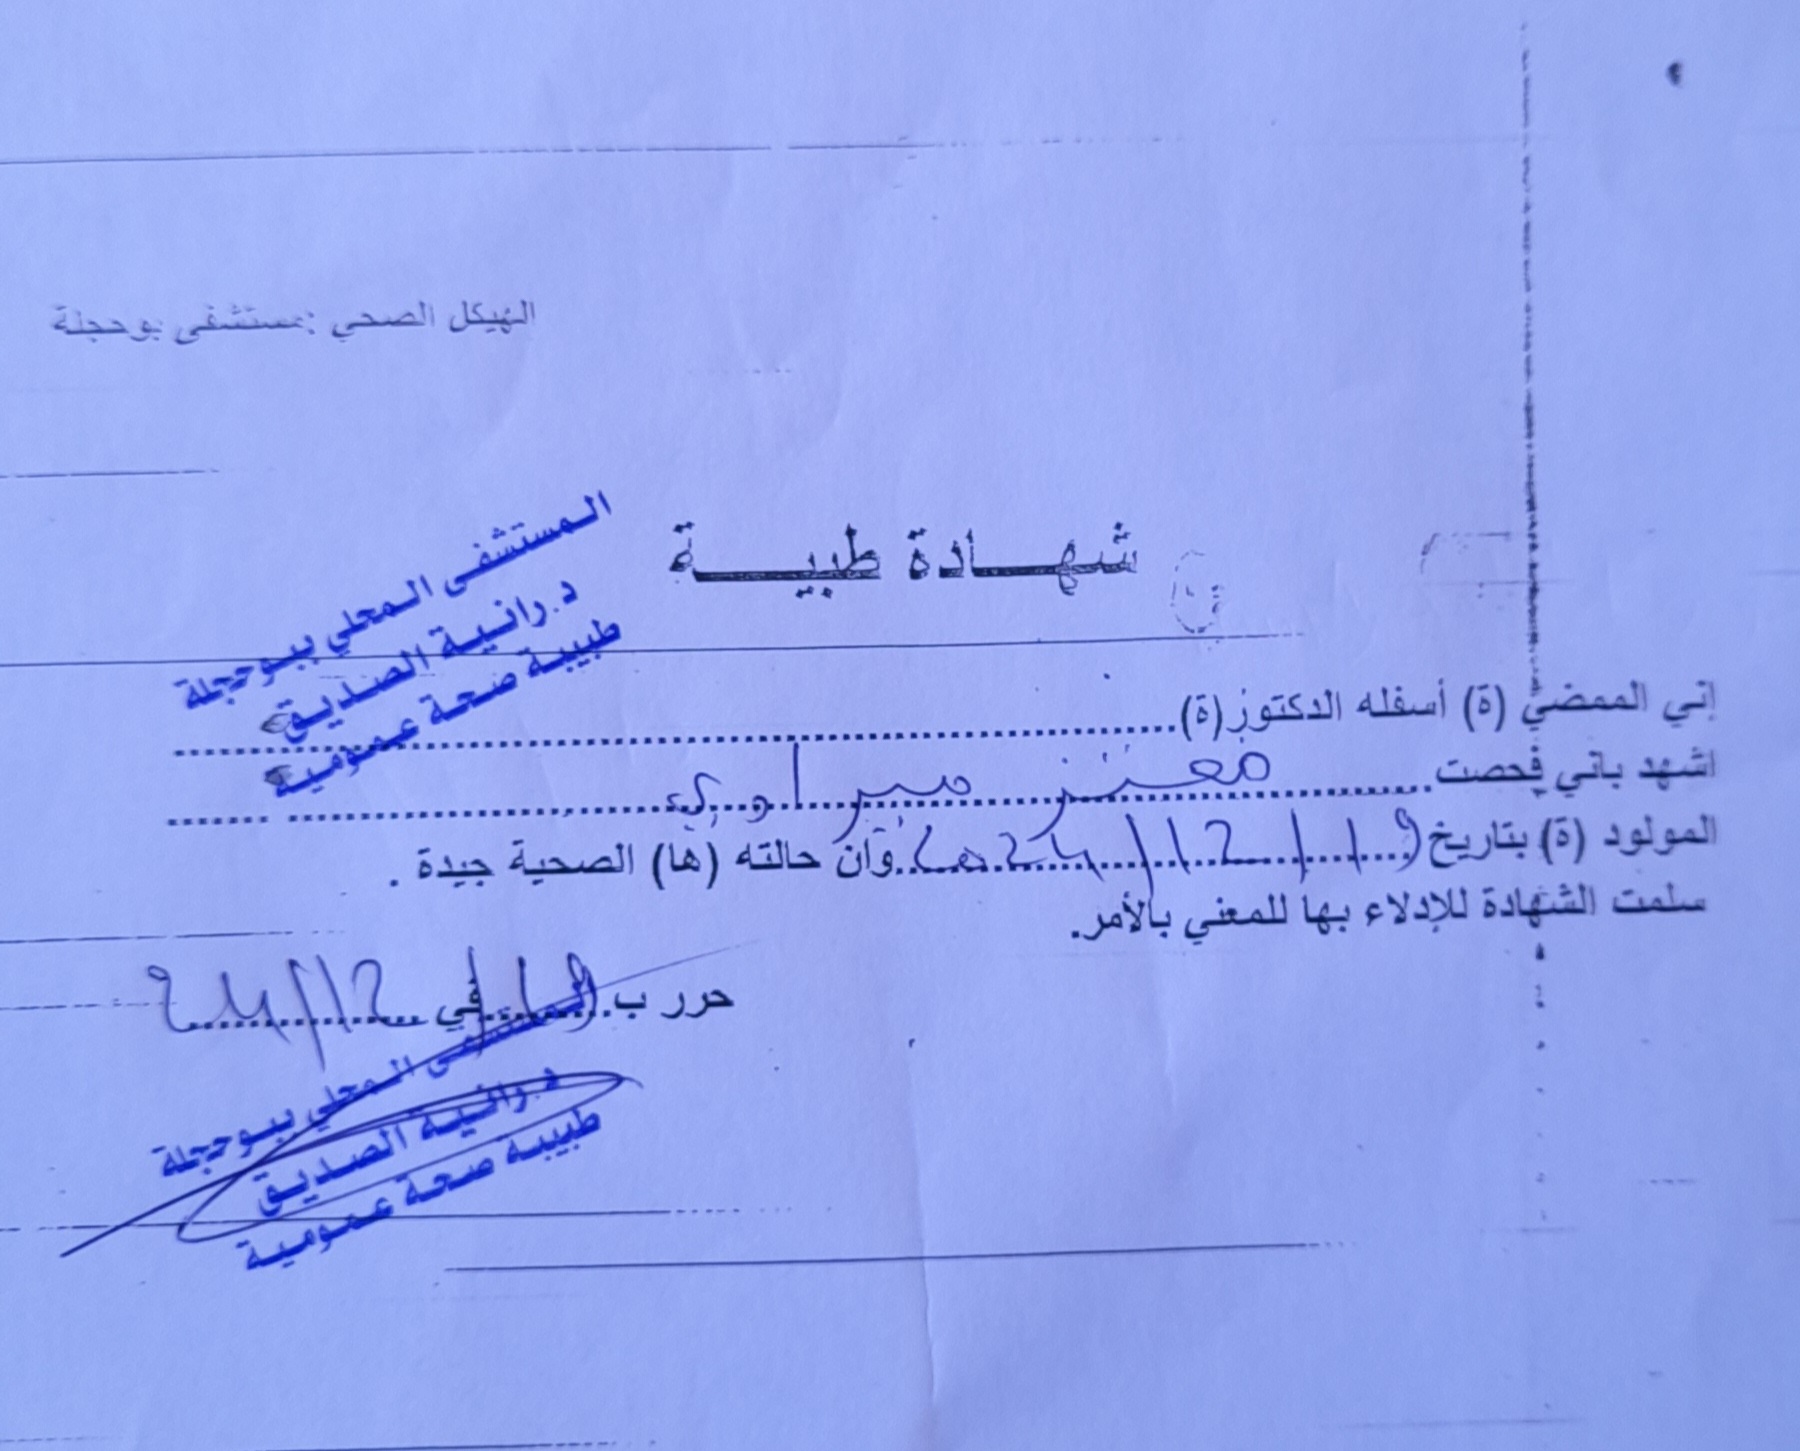 الهيكل الصحي :مستشفى بوحجلة
شهـــادة طبيـــــة
المستشفى المحلي ببوحجلة
د.رانية الصديق
طبيبة صحة عمومية
إني الممضي (ة) أسفله الدكتور(ة)
اشهد باني فحصت معتز
المولود (ة) بتاريخ وان حالته (ها) الصحية جيدة .
سلمت الشهادة للإدلاء بها للمعني بالأمر.
حرر ب في
المستشفى المحلي ببوحجلة
د.رانية الصديق
طبيبة صحة عمومية